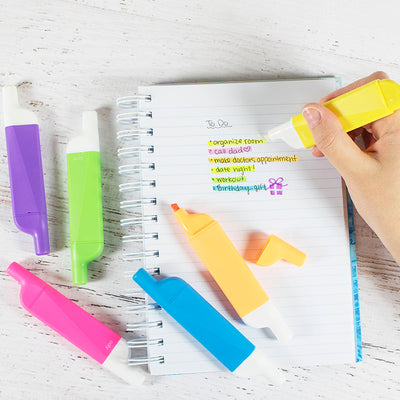 To Do
• organize room
• call dad♡
• make doctors appointment
• date night!
• workout
• Birthday gift